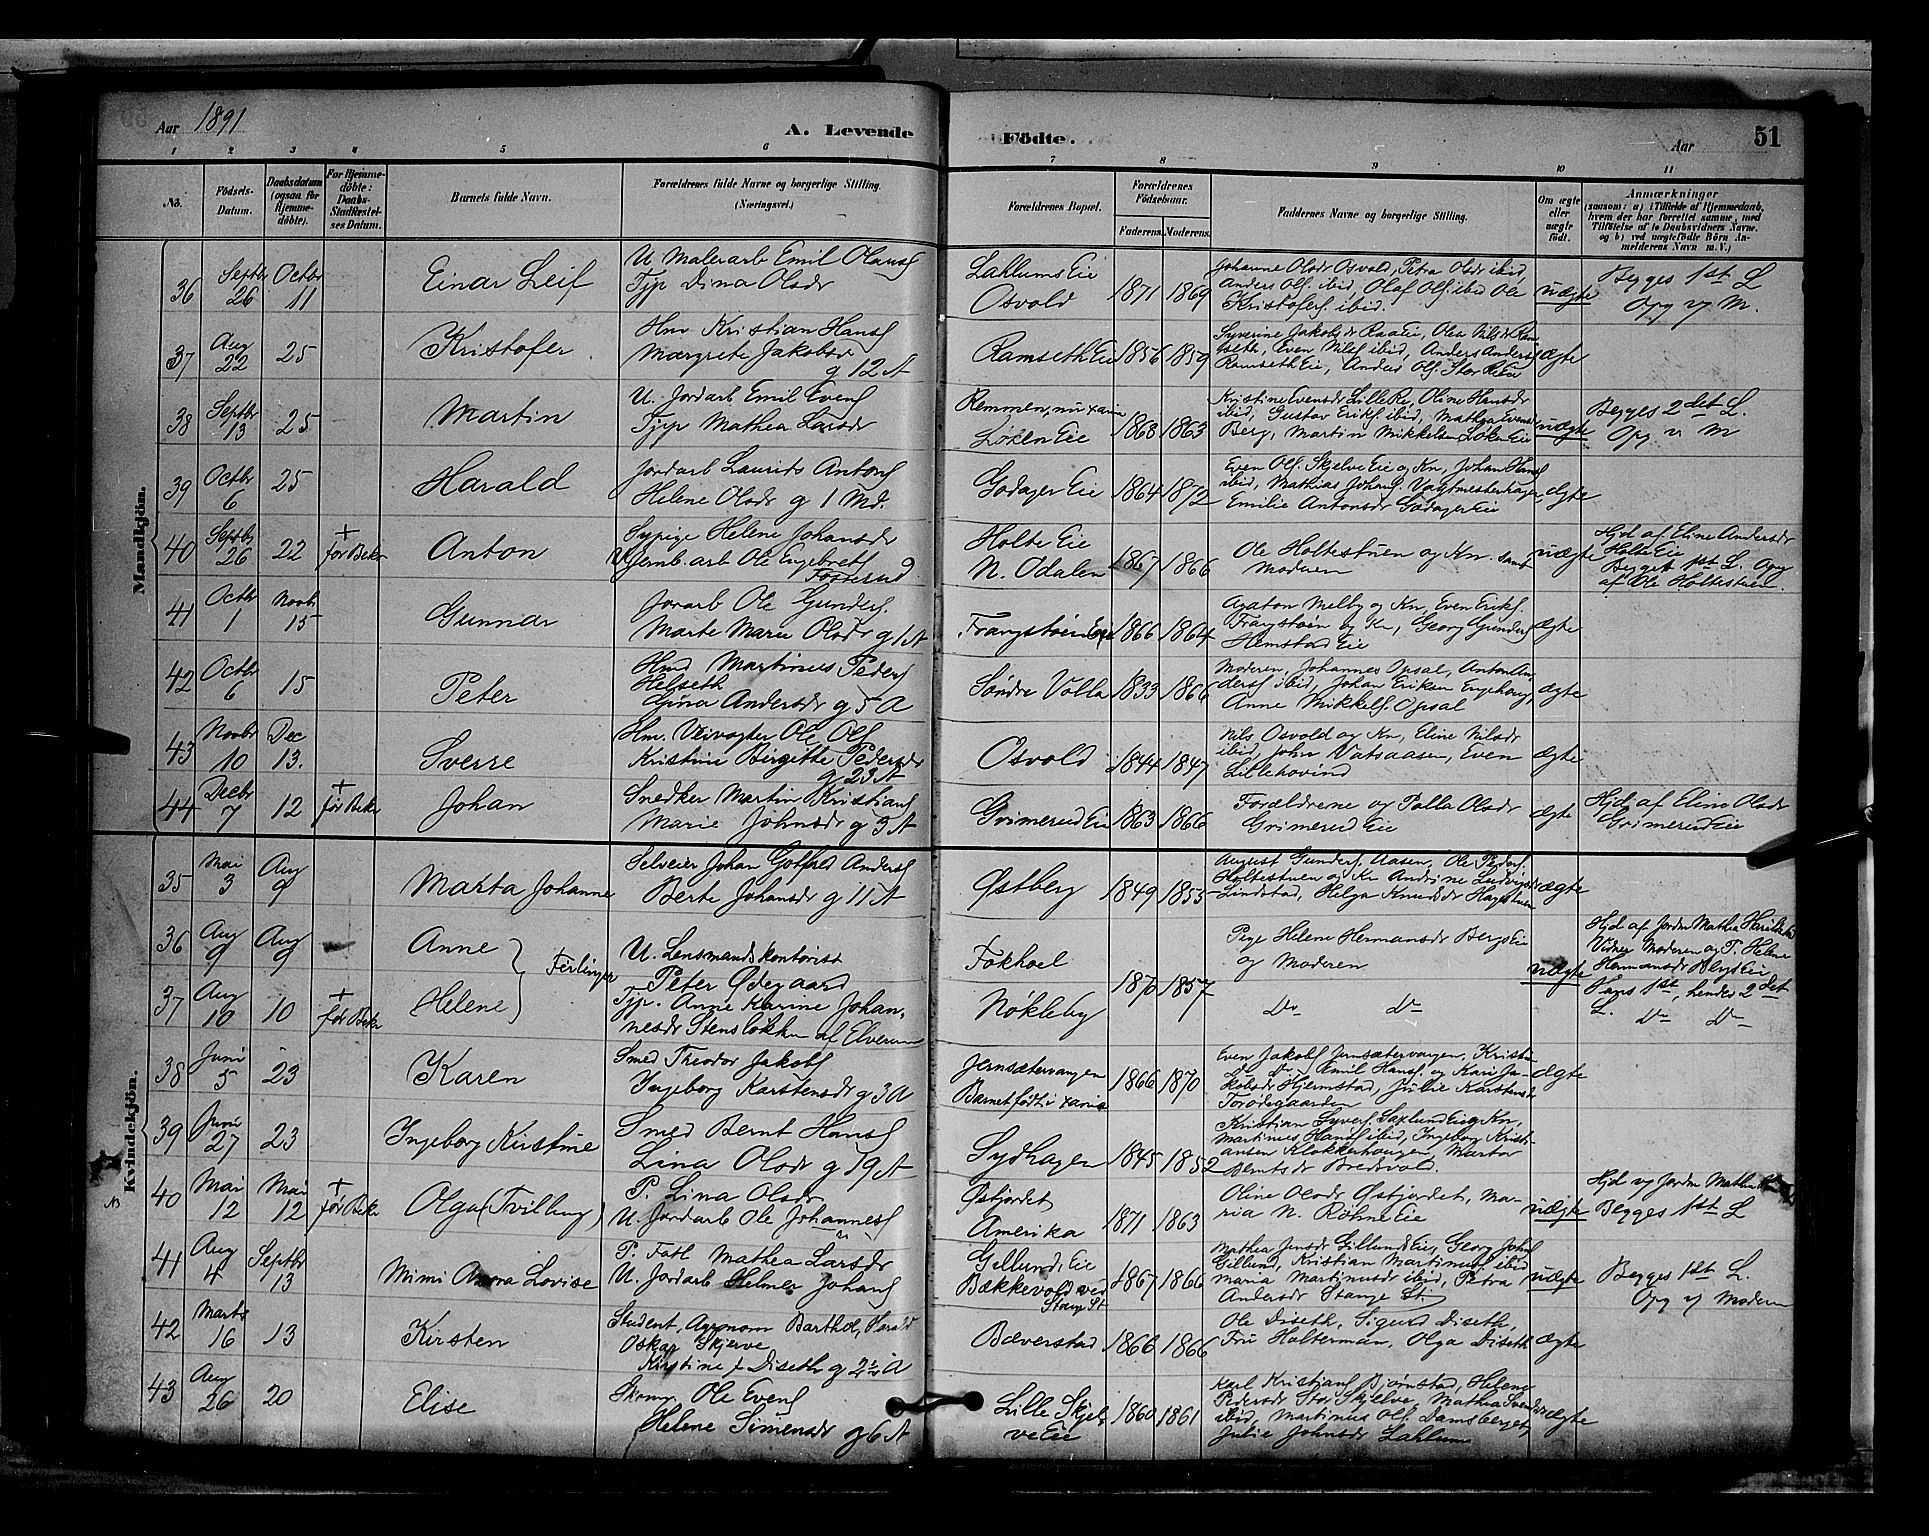 Aar 1891
A. Levende
Födte.
Aar
51
1 2 3 4 5 6 7 8 9 10 11
No.
Födsels-Datum.
Daabsdatum (ogsaa for Hjemmedöbte).
For Hjemmedöbte: Daabs-Stadfæstelses Datum.
Barnets fulde Navn.
Forældrenes fulde Navne og borgerlige Stilling. (Næringsvei.)
Forældrenes Bopæl.
Forældrenes Födselsaar.
Faderens. Moderens.
Faddernes Navne og borgerlige Stilling.
Om ægte eller uægte födt.
Anmærkninger
(saasom: a) i Tilfælde af Hjemmedaab, hvem der har forrettet samme, med Tilföielse af to Daabsvidners Navne, og b) ved uægtefödte Börn Anmelderens Navn m. V.)
Mandkjön.
36 Septbr 26 Octbr 11 Einar Leif
U Malerarb Emil Olausf
Tjp Dina Olsdr
Lahlums Eie
Osvold
1871 1869
Johanne Olsdr Osvold, Petra Olsdr ibid,
Anders Olf. ibid, Olaf Olf. ibid Ole
Kristofers ibid.
uægte
Begges 1st L
Opg v M.
37 Aug 22 25 Kristofer
Hm Kristian Hansf
Margrete Jakobsdr
g 12 A
Ramseth Eie 1856 1859
Syverine Jakobsdr Raa Eie, Olea Nilsdr Ram
seth, Even Nilsf ibid, Anders Andersf
Ramseth Eie,
ægte
38 Septbr 13 25 Martin
U. Jordarb Emil Evensf
Tjp Mathea Larsdr
Remmen, nu Xania
Løken Eie
1868 1863
Kristine Evensdr Lille Re, Oline Hansdr
ibid, Gustav Eriksf ibid, Mathea Evensdr
Berg, Martin Mikkelsen Løken Eie
uægte
Begges 2det L.
Opg v M
39 Octbr 6 25 Harald
Jordarb Laurits Antonsf
Helene Olsdr g 1 Md.
Godager Eie 1864 1872
Even Olf. Skjelve Eie og Kn, Johan Hansf
ibid, Mathias Johansf. Vagtmesterhagen,
Emilie Antonsdr Godager Eie
ægte
40 Septbr 26 22 + før Bekr Anton
Sypige Helene Johansdr
U Jernb. arb Ole Engebretsf
Fosterud
Holte Eie
N. Odalen
1867 1866
Ole Holtestuen og Kn samt
Moderen
uægte
Hjd af Eline Andersdr
Holte Eie
Begges 1st L. Opg
af Ole Holtestuen.
41 Octbr 1 Novbr 15 Gunnar
Jorarb Ole Gundersf.
Marte Marie Olsdr g 1 A
1866 1864
Agaton Melby og Kn, Even Eriksf.
og Kn, Georg Gundersf
Hemstad Eie
ægte
42 Octbr 6 15 Peter
Hmd Martinus Pedersf
Helseth
Andersdr g 5 A
Søndre Volla 1833 1866
Moderen, Johannes Opsal, Anton An-
dersf ibid, Johan Eriksen Engehaug,
Anne Mikkelsf. Opsal
ægte
43 Novbr 10 Dec 13. Sverre
Hm. Veivogter Ole Olf
Kristine Birgitte Pedersdr
g 23 A
Osvold 1844 1847
Nils Osvold og Kn, Eline Nilsdr
ibid, John Vatsaasen, Even
Lillehovind
ægte
44 Decbr 7 12 + før Bekr Johan
Snedker Martin Kristiansf
Marie Johnsdr g 3 A
Grimerud Eie 1863 1866
Forældrene og Palla Olsdr
Grimerud Eie
ægte
Hjd af Eline Olsdr
Grimerud Eie
Kvindekjön.
35 Mai 3 Aug 9 Marta Johanne
Selveier Johan Gotfred Andersf
Berte Johansdr g 11 A
Østberg 1849 1853
August Gundersf. Aasen, Ole Pedersf.
Holtestuen og Kn Andrine Ludvigsdr
Lindstad, Helga Knudsdr
ægte
36 Aug 9 Aug 9 Anne
Tvilinger
U. Lensmandskontorist
Peter Ødegaard
Fokhoel
Pige Helene Hermansdr Bergs Eie
og Moderen
uægte
Hjd af Jordm Mathea
Vidner Moderen og P. Helene
Hermansdr
Hans 1st, hendes 2det
L.
37 Aug 10 10 + før Bekr Helene
Tjp. Anne Karine Johan-
nesdr Stensløkken af Elverum
Nøkleby
1870 1857
Do Do
Do Do
38 Juni 5 23 Karen
Smed Theodor Jakobsf
Ingeborg Karstensdr g 3 A
Jernsætervangen
Barnet født i Xania
1866 1870
Even Jakobsf Jernsætervangen, Kristi-
Do Do Emil Hansf. og Kari Ja-
kobsdr Hjelmstad, Julie Karstensdr
Torødegaarden
ægte
39 Juni 27 23 Ingeborg Kirstine
Smed Bernt Hansf
Lina Olsdr g 19 A
Sydhagen 1845 1852
Kristian Syversf. Saxlund Eie og Kn,
Martinus Hansf ibid, Ingeborg Kristi-
ansen Klokkerhaugen, Martea
Berntsdr Bredsvold.
NB 40 Mai 12 Mai 12 + før Bekr Olga (Tvilling)
P. Lina Olsdr
U. Jordarb Ole Johannesf
Østjordet
Amerika
1871 1863
Oline Olsdr Østjordet, Ma-
ria N. Røhne Eie
uægte
Hjd v Jordm Mathea
Begges 1st L
41 Aug 4 Septbr 13 Mimi Anna Lovise
P. Fatl Mathea Larsdr
U. Jordarb Helmer Johansf
Gillunds Eie
Bækkevold ved
Stange St
1867 1866
Mathea Jensdr Gillunds Eie, Georg Johsf
Gillund, Kristian Martinusf ibid,
Maria Martinusdr ibid, Petra
Andersdr Stange St.
uægte
Begges 1st L.
Opg v Moderen
42 Marts 16 13 Kirsten
Student, Agronom Barthol. Harald
Oskar Skjerve
Kirstine f Diseth g 2 1/2 A
Bæverstad 1866 1866
Ole Diseth, Sigurd Diseth,
Fru Halterman, Olga Diseth
ægte
43 Aug 26 20 Elise
Skom. Ole Evensf
Helene Simensdr g 6 A
Lille Skjel-
ve Eie
1860 1861
Karl Kristiansf Bjørnstad, Helene
Pedersdr Stor Skjelve, Mathea Svendsdr
ibid, Martinus Olf. Damsberget,
Julie Johnsdr Lahlum
ægte